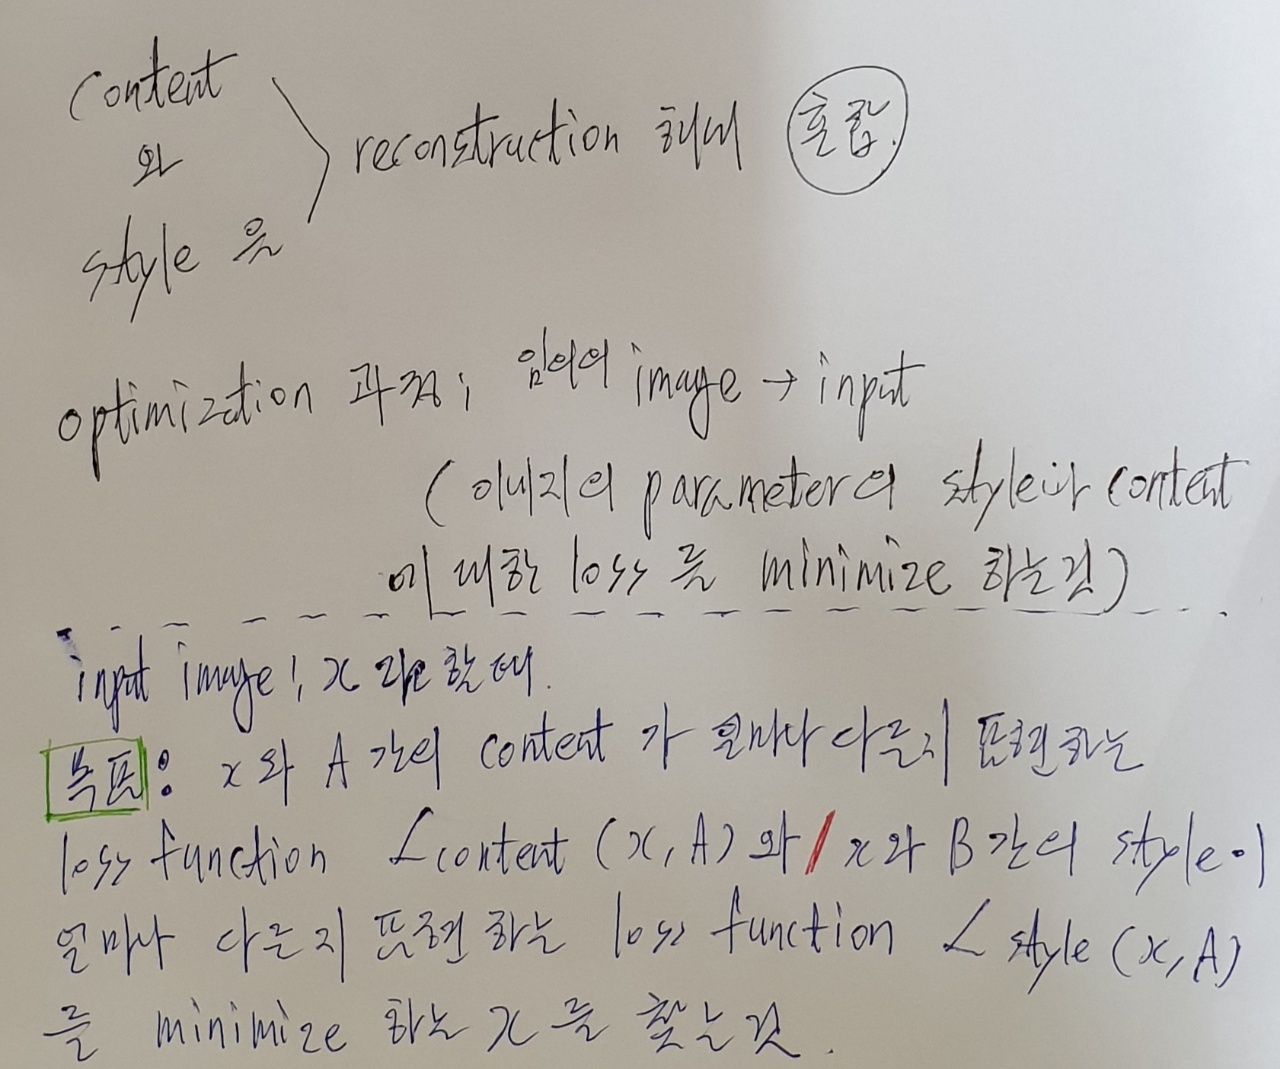 content
와
style 을
reconstruction 해내 혼합.
optimization 과정; 임의의 image → input
(이미지의 parameter의 style과 content
에 대한 loss 를 minimize 하는것)
input image; x 라 할 때.
목표: x와 A 간의 content 가 얼마나 다른지 표현하는
loss function Lcontent (x, A) 와 / x와 B 간의 style이
얼마나 다른지 표현 하는 loss function L style (x, A)
를 minimize 하는 x 를 찾는것.